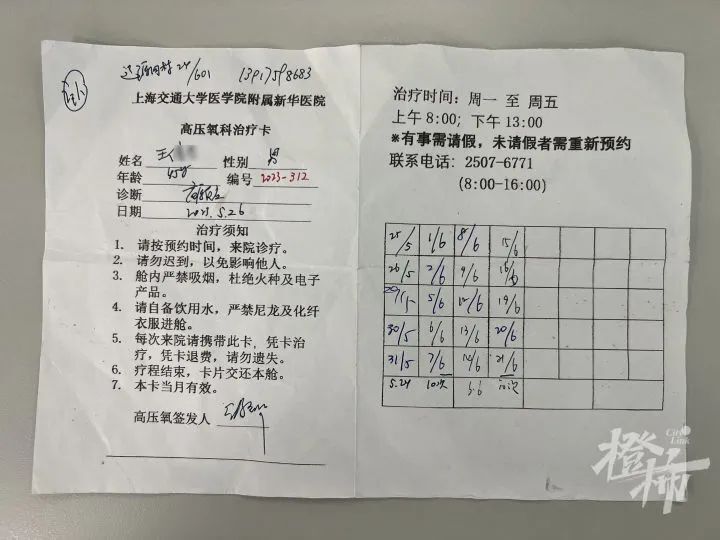 24/601 13917598683
上海交通大学医学院附属新华医院
高压氧科治疗卡
姓名 王 性别 男
年龄 45岁 编号 2023-312
诊断
日期 2023.5.26
治疗须知
1. 请按预约时间，来院诊疗。
2. 请勿迟到，以免影响他人。
3. 舱内严禁吸烟，杜绝火种及电子
产品。
4. 请自备饮用水，严禁尼龙及化纤
衣服进舱。
5. 每次来院请携带此卡，凭卡治
疗，凭卡退费，请勿遗失。
6. 疗程结束，卡片交还本舱。
7. 本卡当月有效。
高压氧签发人
治疗时间：周一 至 周五
上午 8:00；下午 13:00
*有事需请假，未请假者需重新预约
联系电话：2507-6771
(8:00-16:00)
25/5 1/6 8/6 15/6
26/5 2/6 9/6 16/6
29/5 5/6 12/6 19/6
30/5 6/6 13/6 20/6
31/5 7/6 14/6 21/6
10次 10次
橙柿
City Link